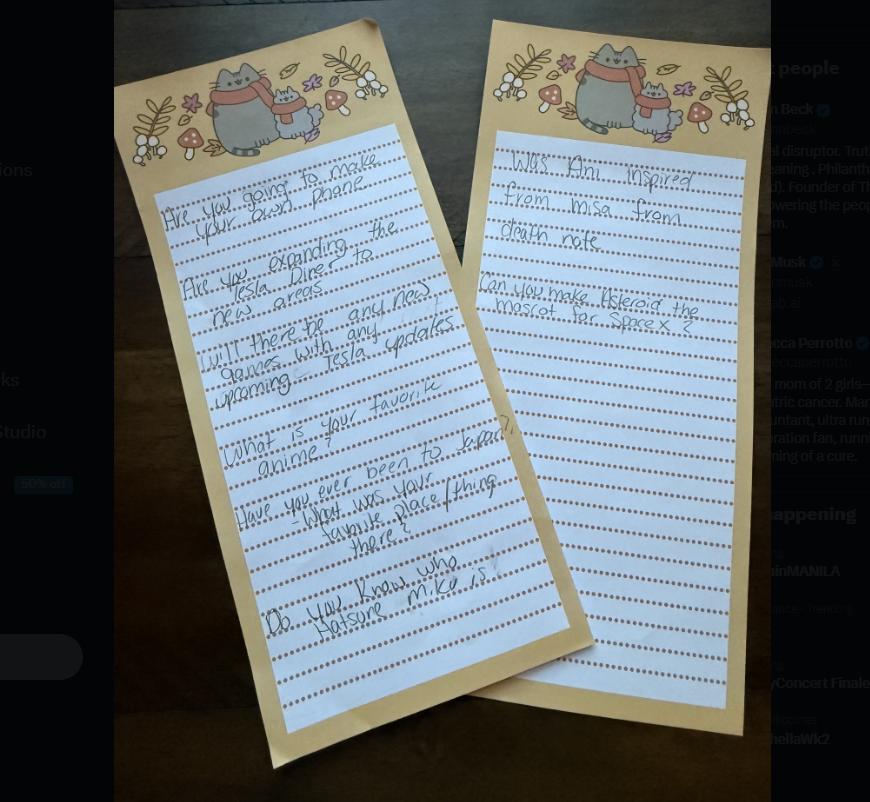 Are you going to make
your own phone
Are you expanding the
Tesla Diner to
new areas
will there be any new
games with any
upcoming Tesla updates
What is your favorite
anime?
Have you ever been to Japan?
- What was your
favorite place/thing
there?
Do you know who
Hatsune miku is
Was Ani inspired
from misa from
death note
Can you make Asteroid the
mascot for SpaceX?
ions
ks
Studio
50% off
people
n Beck
nnbeck
al disruptor. Trut
eaning . Philanth
d). Founder of Th
owering the peop
m.
Musk
nmusk
ab.ai
cca Perrotto
eccaperrotto
mom of 2 girls—
tric cancer. Mar
untant, ultra run
ration fan, runn
ming of a cure.
appening
inMANILA
Trending
yConcert Finale
hellaWk2